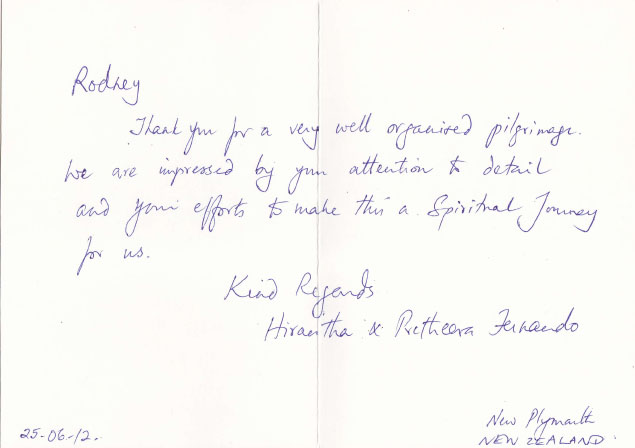 Rodney
Thank you for a very well organised pilgrimage.
We are impressed by your attention to detail
and your efforts to make this a Spiritual Journey
for us.
Kind Regards
Hirantha & Fernando
New Plymouth
25-06-12. NEW ZEALAND.